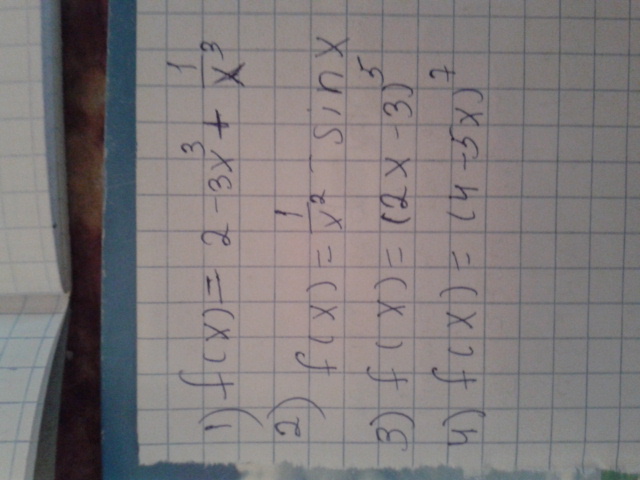 1) f(x) = 2 - 3x³ + 1/x³
2) f(x) = 1/x² - sin x
3) f(x) = (2x - 3)⁵
4) f(x) = (4 - 5x)⁷